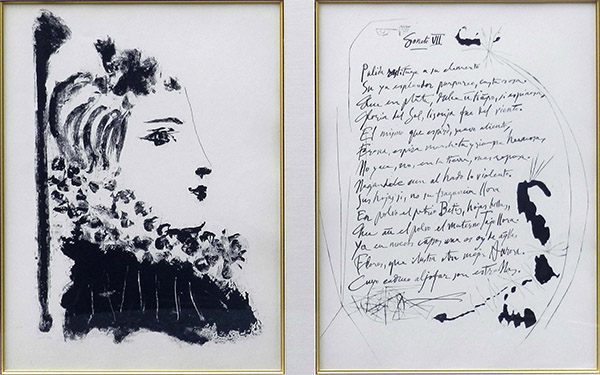 Soneto VII
Palida restituye a su elemento
Su ya esplendor purpureo, casta rosa,
Que en planta, dulce un tiempo, si espinosa,
Gloria del Sol, lisonja fue del viento.
El mismo que espiró, suave aliento,
Fresca, espira marchita y siempre hermosa,
No yace, no, en la tierra, mas reposa,
Negandole aun el hado lo violento.
Sus hojas si, no su fragancia llora
En polvo el patrio Betis, hojas bellas,
Que aun en polvo el materno Tejo dora.
Ya en nuevos campos una es oy de aquellas
Flores, que ilustra otra mejor Aurora.
Cuyo caduco aljofar son estrellas.